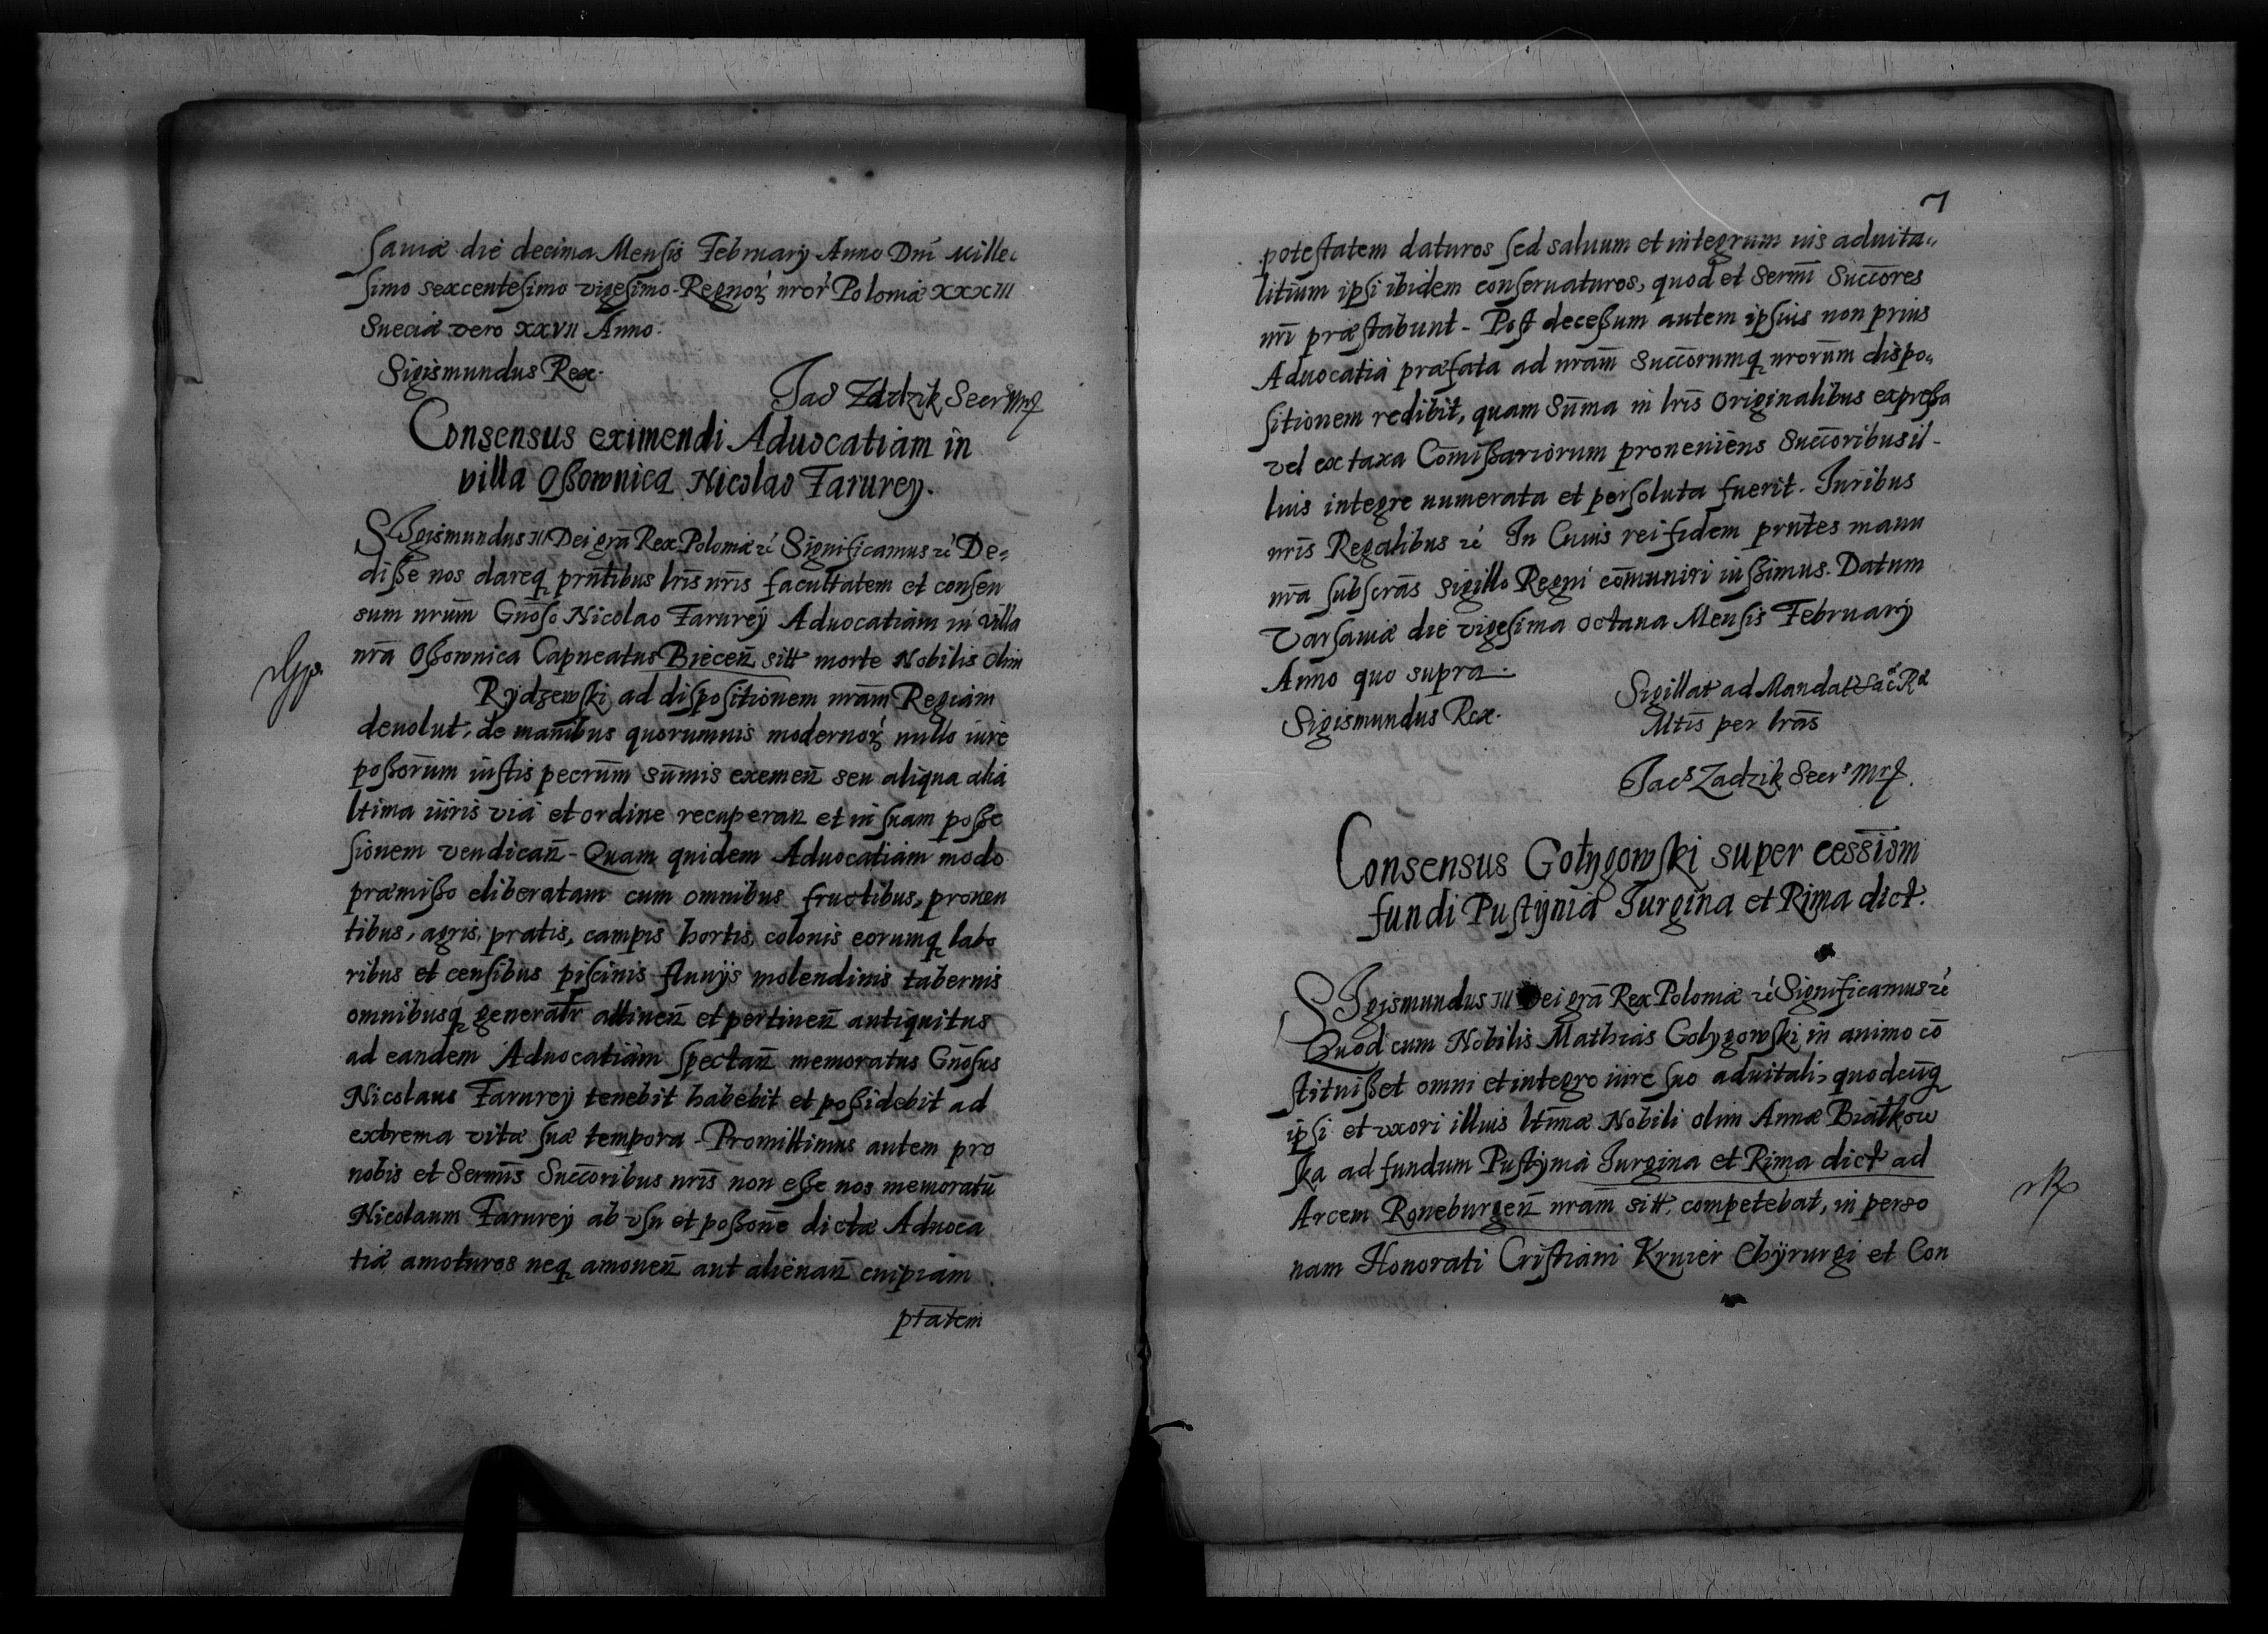 sauiæ die decima Mensis February Anno Dni Mille-
simo sexcentesimo vigesimo. Regnor nror Poloniæ XXXIII
Sueciæ vero XXVII Anno.
Sigismundus Rex.
Jac Zadzik Secr
Consensus eximendi Aduocatiam in
villa Oßownica Nicolao Tarurey.
SIgismundus III Dei grã Rex Poloniæ Significamus De-
diße nos dareq prñtibus lris nris facultatem et consen
sum nrum Gñoso Nicolao Tarurey Aduocatiam in villa
nra Oßownica Capneatus Biecen sitt morte Nobilis olim
Rydzewski ad dispositionem nram Regiam
deuolut, de manibus quorumuis modernor nullo iure
poßorum iustis pecrum sumis exemen seu aliqua alia
ltima iuris via et ordine recuperan et in suam poße
sionem vendican. Quam quidem Aduocatiam modo
præmißo eliberatam cum omnibus fructibus, prouen
tibus, agris, pratis, campis hortis, colonis eorumq labo
ribus et censibus piscinis fluuijs molendinis tabernis
omnibusq generatr attinen et pertinen antiquitus
ad eandem Aduocatiam spectan memoratus Gñosus
Nicolaus Tarurey tenebit habebit et poßidebit ad
extrema vitæ suæ tempora. Promittimus autem pro
nobis et Sermis Succoribus nris non eße nos memoratu
Nicolaum Tarurey ab vsu et poßone dictæ Aduoca
tiæ amoturos neq amouen aut alienan cuipiam
ptatem
7
potestatem daturos sed saluum et integrum ius aduita-
litium ipsi ibidem conseruaturos, quod et Sermi Succores
nri præstabunt. Post deceßum autem ipsius non prius
Aduocatia præfata ad nram Succorumq nrorum dispo-
sitionem redibit, quam Suma in lris Originalibus expreßa
vel ex taxa Comißariorum proueniens Succoribus il-
lius integre numerata et persoluta fuerit. Iuribus
nris Regalibus In Cuius rei fidem prntes manu
nra subscras sigillo Regni comuniri iußimus. Datum
Varsauiæ die vigesima octaua Mensis February
Anno quo supra.
Sigismundus Rex.
Sigillat ad Mandat Sac Ræ
Mtis per lras
Jacs Zadzik Secrs
Consensus Gołygowski super cessism
fundi Pustynia Jurgina et Rima dict.
SIgismundus III Dei grã Rex Poloniæ Significamus
Quod cum Nobilis Mathias Golygowski in animo co
stituißet omni et integro iure suo aduitali, quodcuq
ipsi et vxori illius ltimæ Nobili olim Annæ Białkow
ska ad fundum Pustynia Jurgina et Rima dict ad
Arcem Roneburgen nram sitt. competebat, in perso
nam Honorati Cristiani Kruier Chyrurgi et Con